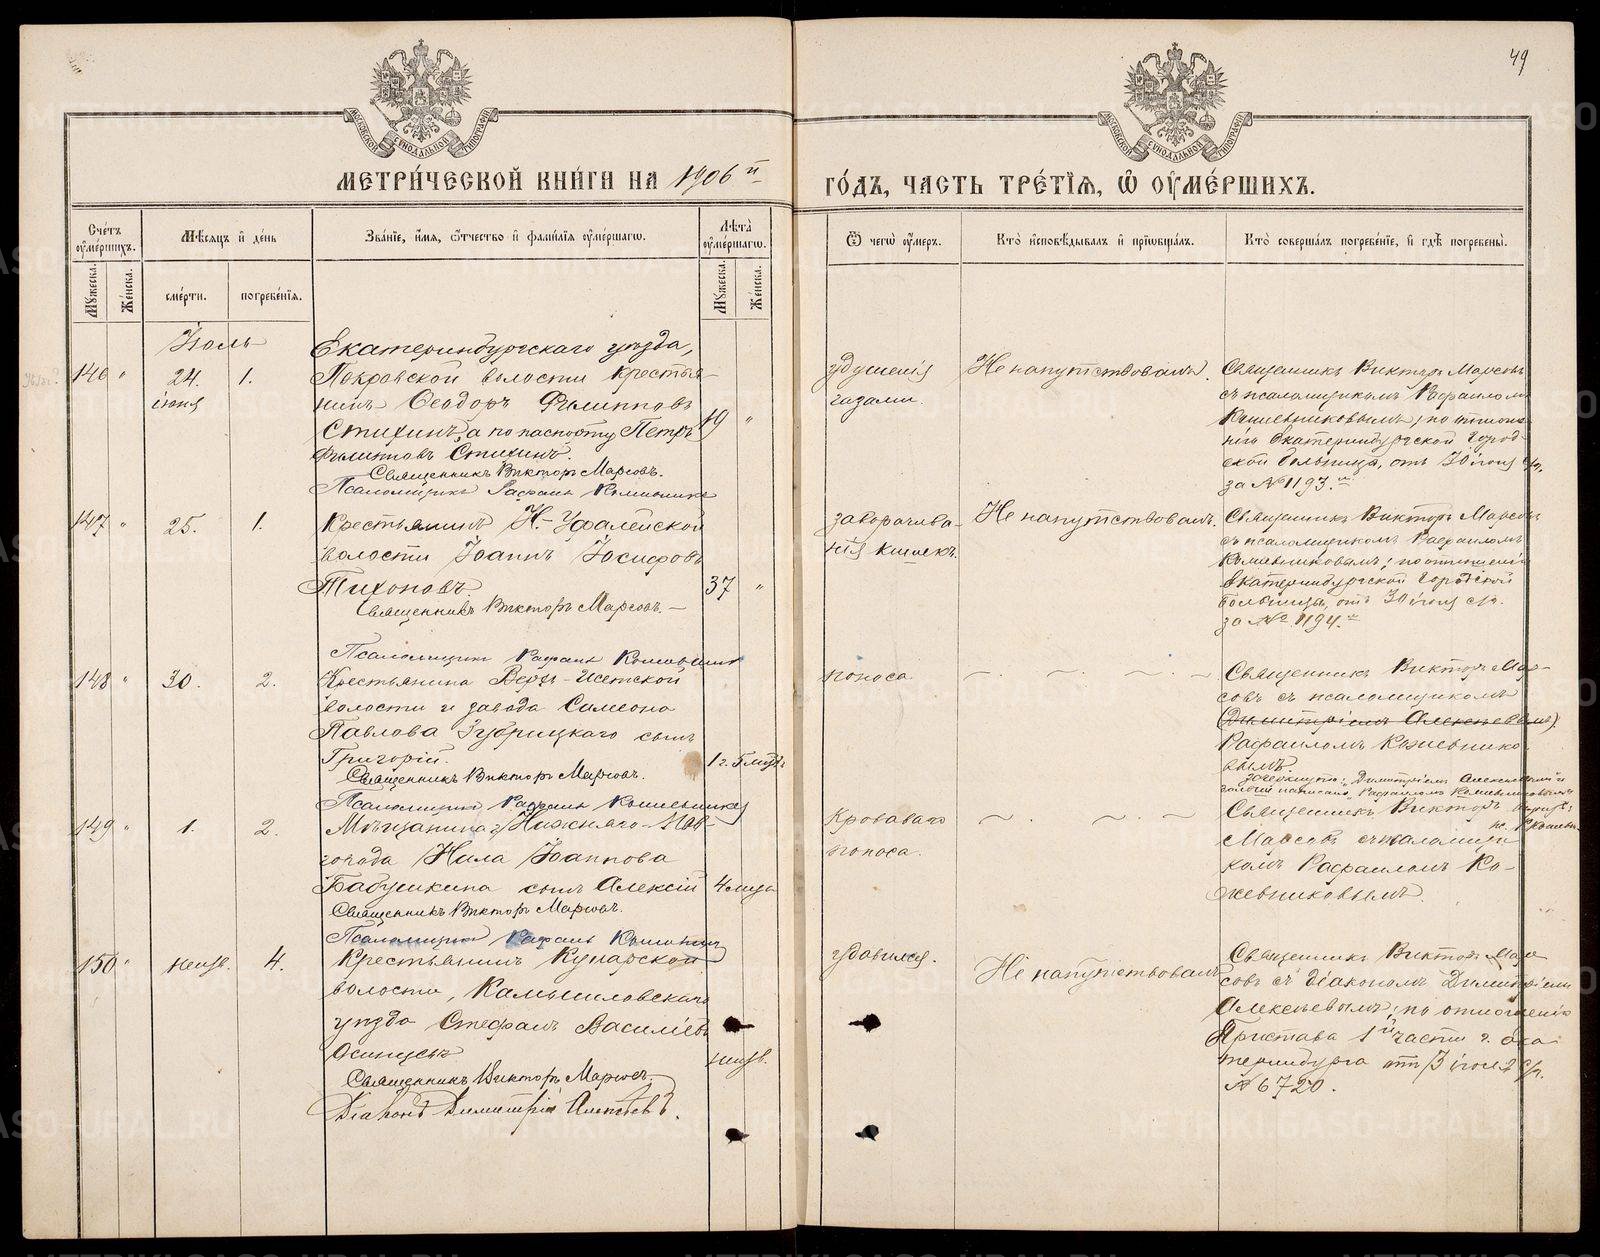 49
МЕТРИ́ЧЕСКОЙ КНИ́ГИ НА 1906 й
ГО́ДЪ, ЧАСТЬ ТРЕ́ТІѦ, Ѽ ОУМЕ́РШИХЪ.
МОСКОВСКОЙ СѴНОДАЛЬНОЙ ТИПОГРАФІИ
МОСКОВСКОЙ СѴНОДАЛЬНОЙ ТИПОГРАФІИ
Сче́тъ оуме́ршихъ.
Мꙋжеска.
Же́нска.
Мѣсяцъ и де́нь
сме́рти.
погребе́нїя.
Зва́нїе, и́мя, ѻ́тчество и фами́лїя оуме́ршагѡ.
Лѣта̀ оуме́ршагѡ.
Мꙋжеска.
Же́нска.
Ѿ чегѡ̀ оу́меръ.
Кто̀ и҆сповѣ́дывалъ и прїѡбща́лъ.
Кто̀ соверша́лъ погребе́нїе, и гдѣ̀ погребены̀.
Іюль
146 " 24. іюня 1.
Екатеринбургскаго уѣзда,
Покровской волости крестья-
нинъ Ѳеодоръ Филипповъ
Стихинъ, а по паспорту Петръ
Филипповъ Стихинъ.
Священникъ Викторъ Марсовъ.
Псаломщикъ Рафаилъ Кожевниковъ
19 "
удушенія
газами.
Не напутствованъ.
Священникъ Викторъ Марсовъ
съ псаломщикомъ Рафаиломъ
Кожевниковымъ; по отноше-
нію Екатеринбургской город-
ской больницы, отъ 30 іюня с/г.
за № 1193.м
147 " 25. 1.
Крестьянинъ Н.-Уфалейской
волости Іоаннъ Іосифовъ
Тихоновъ
Священникъ Викторъ Марсовъ.
Псаломщикъ Рафаилъ Кожевниковъ
37 "
заворачива-
нія кишекъ.
Не напутствованъ.
Священникъ Викторъ Марсовъ
съ псаломщикомъ Рафаиломъ
Кожевниковымъ; по отношенію
Екатеринбургской городской
больницы, отъ 30 іюня с/г.
за № 1194.м
148 " 30. 2.
Крестьянина Верхъ-Исетской
волости и завода Симеона
Павлова Зубрицкаго сынъ
Григорій.
Священникъ Викторъ Марсовъ.
Псаломщикъ Рафаилъ Кожевниковъ
1 г. 5 мцвъ
поноса
Священникъ Викторъ Мар-
совъ съ псаломщикомъ
(Димитріемъ Алексѣевымъ).
Рафаиломъ Кожевнико-
вымъ
зачеркнуто: "Димитріемъ Алексѣевымъ" и
написано "Рафаиломъ Кожевниковымъ"
149 " 1. 2.
Мѣщанина г. Нижняго-Нов-
города Нила Іоаннова
Бабушкина сынъ Алексій
Священникъ Викторъ Марсовъ.
Псаломщикъ Рафаилъ Кожевниковъ
4 мца
Кроваваго
поноса.
Священникъ Викторъ
Марсовъ съ псаломщи-
комъ Рафаиломъ Ко-
жевниковымъ.
150 " неизв. 4.
Крестьянинъ Кунарской
волости, Камышловскаго
уѣзда Стефанъ Василіевъ
Осинцевъ
Священникъ Викторъ Марсовъ
Діаконъ Димитрій Алексѣевъ.
неизв.
удавился.
Не напутствованъ
Священникъ Викторъ Мар-
совъ съ діакономъ Димитріемъ
Алексѣевымъ; по отношенію
Пристава 1й части г. Ека-
теринбурга отъ 3 іюля с/г.
№ 6720.
METRIKI.GASO-URAL.RU